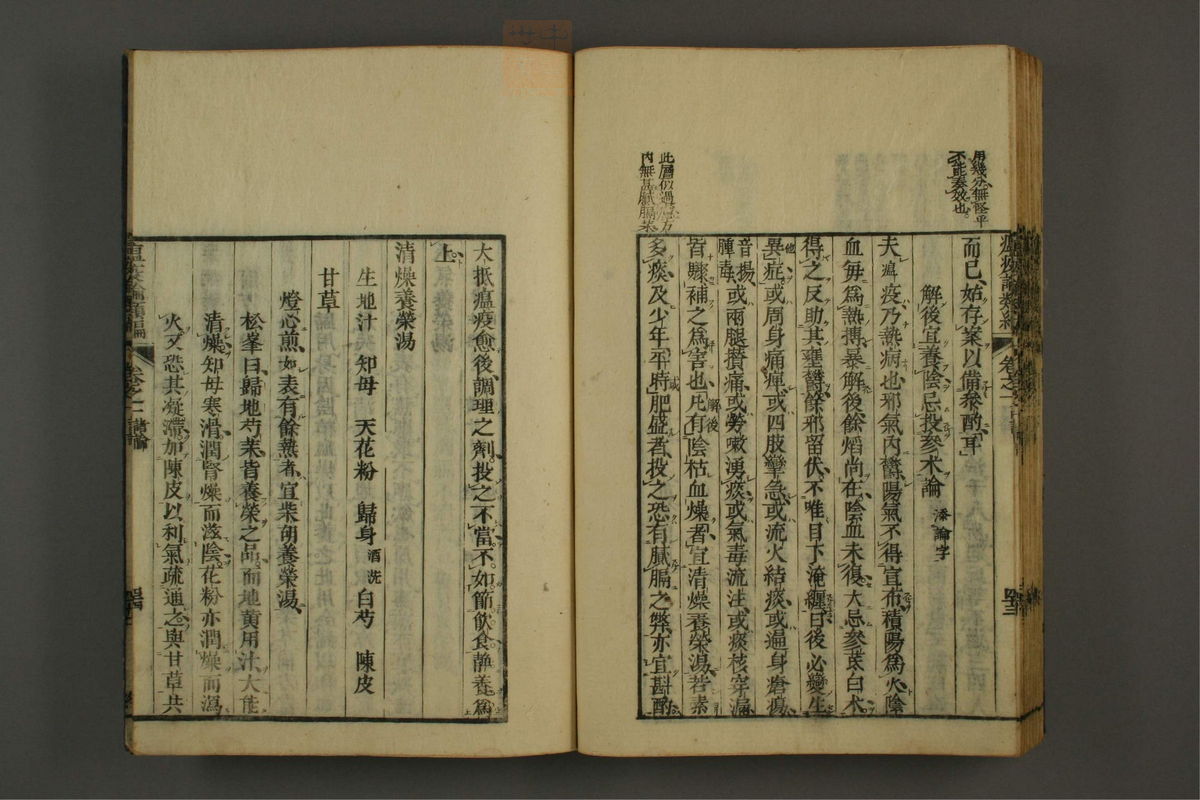 用幾分無怪乎
不能奏效也
而已始存案以備參酌耳
解後宜養陰忌投參朮論 添論字
夫瘟疫乃熱病也邪氣內鬱陽氣不得宣布積陽為火陰
血每為熱搏暴解後餘焰尚在陰血未復大忌參芪白朮
得之反助其壅鬱餘邪留伏不唯目下淹纏日後必變生
異症或周身痛痺或四肢攣急或流火結痰或遍身瘡瘍
音揚或兩腿攢痛或勞嗽湧痰或氣毒流注或痰核穿漏
腫毒
皆驟補之為害也凡有陰枯血燥者宜清燥養榮湯若素
解後
多痰及少年平時肥盛者投之恐有膩膈之弊亦宜斟酌
此層似過慮方
內無甚膩膈藥
大抵瘟疫愈後調理之劑投之不當不如節飲食靜養為
上
清燥養榮湯
生地汁 知母 天花粉 歸身酒洗 白芍 陳皮
甘草
燈心煎如表有餘熱者宜柴胡養榮湯
松峯曰歸地芍茱皆養榮之品而地黃用汁大能
清燥知母寒滑潤腎燥而滋陰花粉亦潤燥而瀉
火又恐其凝滯加陳皮以利氣疏通之與甘草共
瘟疫論類編 卷之二 諸論